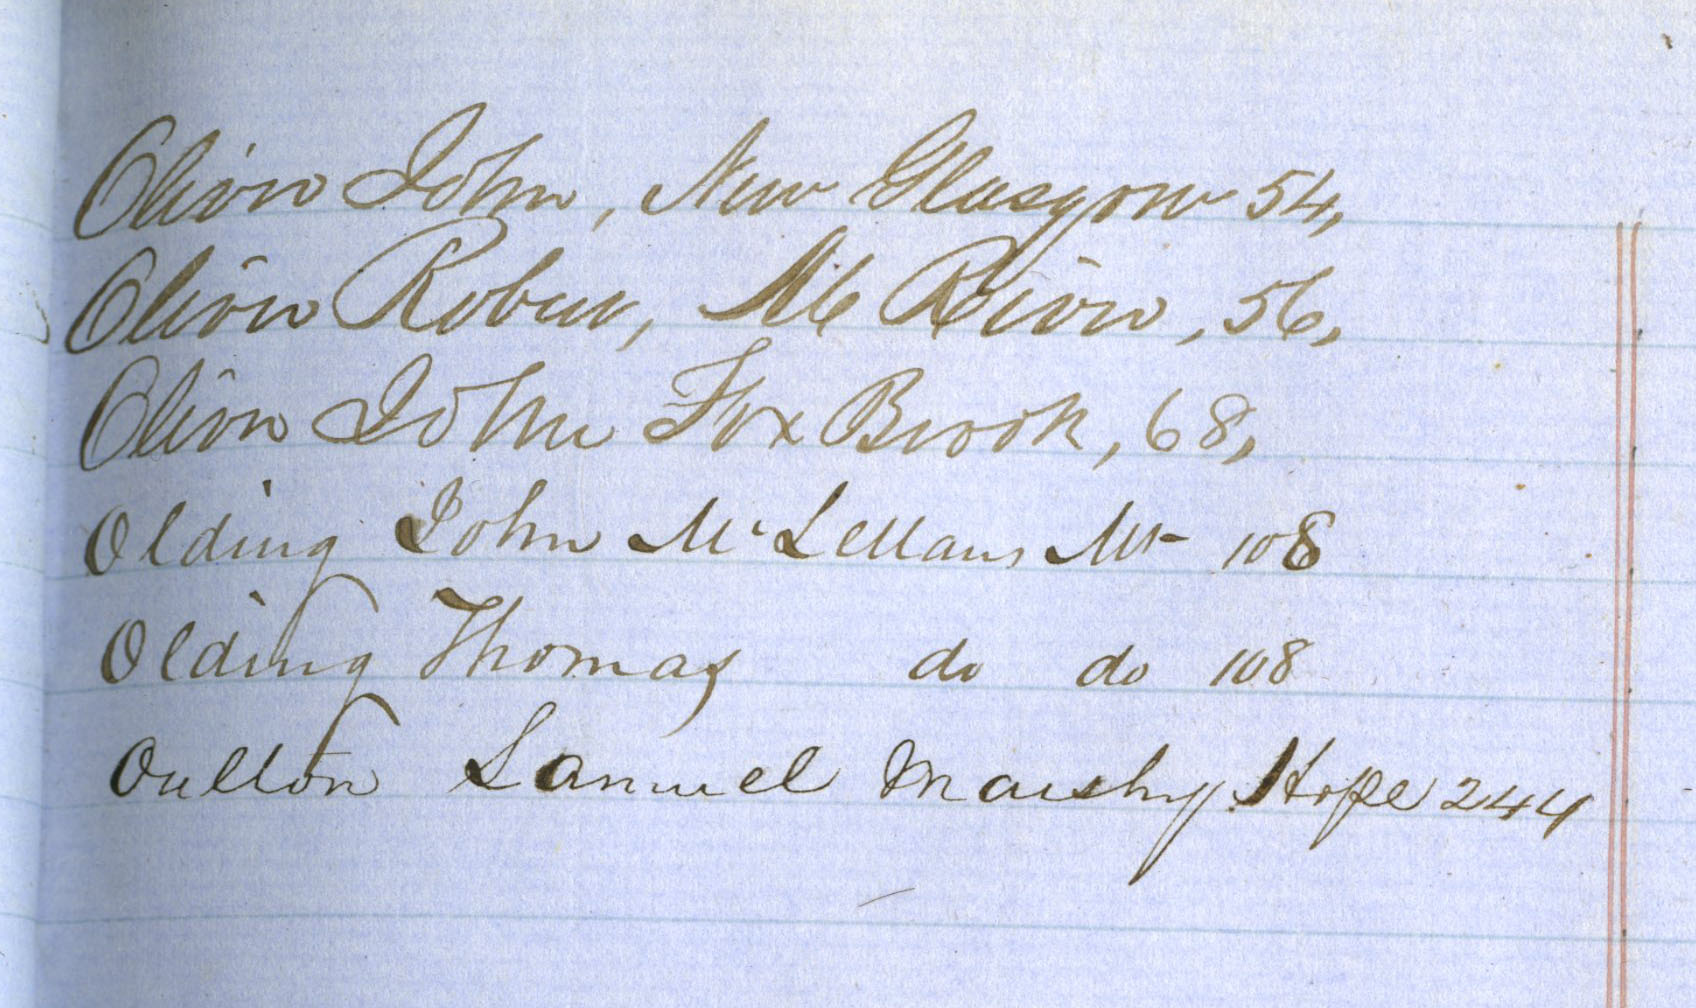 Oliver John, New Glasgow 54,
Oliver Robert, M River, 56,
Oliver John Fox Brook, 68,
Olding John McLellans Mt 108
Olding Thomas do do 108
Oulton Samuel Marshy Hope 244